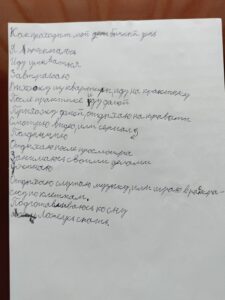 Как проходит мой день
Я Просыпаюсь
Иду умываться
Завтракаю
Выхожу из квартиры, иду на практику
После практики иду домой
Прихожу домой, отдыхаю на кровати
Смотрю видео, или сериал
Полдничаю
Отдыхаю после просмотра
Занимаюсь своими делами
Ужинаю
Отдыхаю слушаю музыку, или играю в
по клеткам.
Подготавливаюсь ко сну
Ложусь спать.